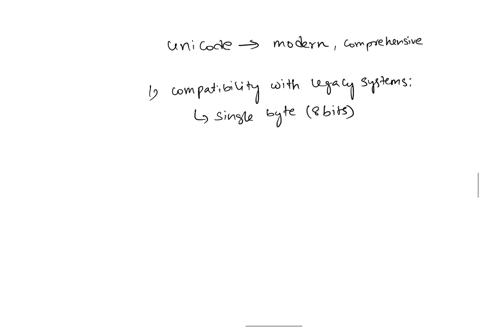 unicode → modern, comprehensive
1) compatibility with legacy systems:
↳ single byte (8bits)